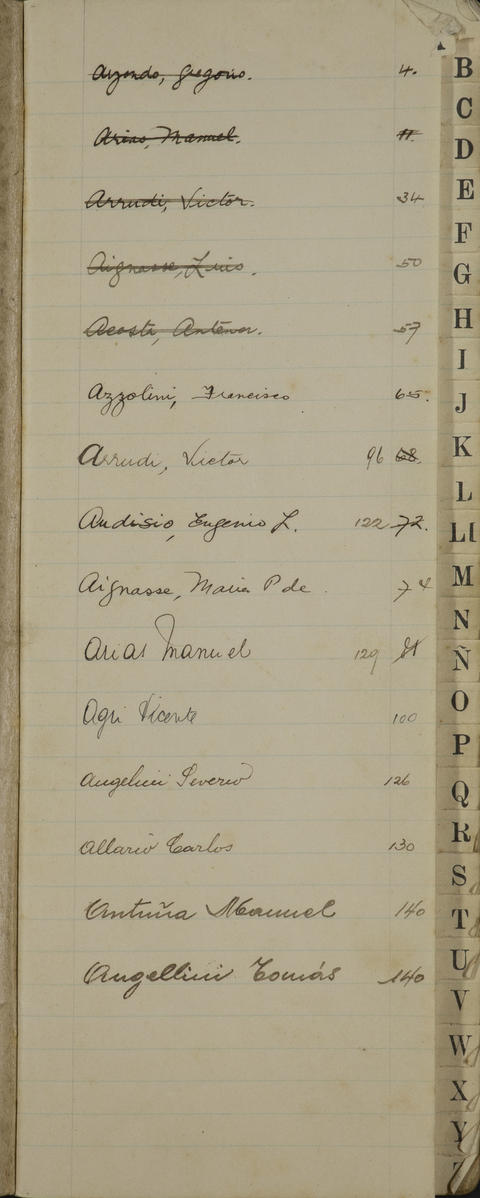 Arzondo, Gregorio. 4.
Arias, Manuel. 11.
Arrudi, Victor. 34
Aignasse, Luis. 50
Acosta, Antenor. 57
Azzolini, Francisco 65.
Arrudi, Victor 96 68.
Audisio, Eugenio L. 122 72.
Aignasse, Maria P de. 74
Arias Manuel 129 81
Agri Vicente 100
Angelini Severio 126
Allario Carlos 130
Antuña Manuel 140
Angellini Tomás 140
B
C
D
E
F
G
H
I
J
K
L
Ll
M
N
Ñ
O
P
Q
R
S
T
U
V
W
X
Y
Z